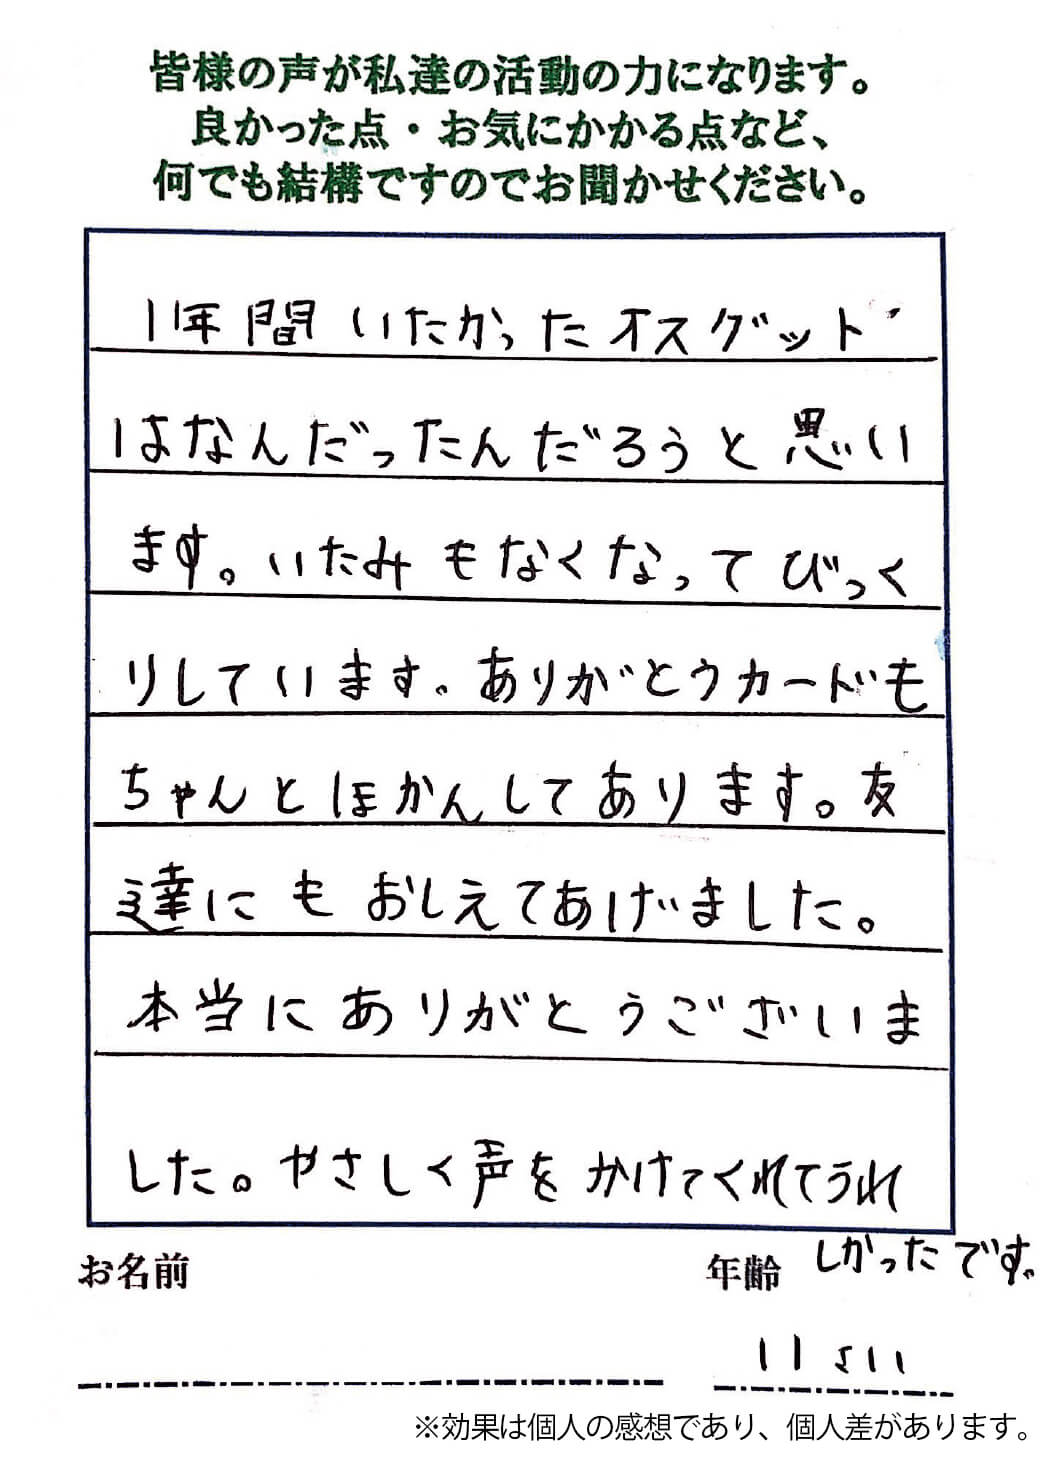 皆様の声が私達の活動の力になります。
良かった点・お気にかかる点など、
何でも結構ですのでお聞かせください。
11年間いたかったオスグット
はなんだったんだろうと思い
ます。いたみもなくなってびっく
りしています。ありがとうカードも
ちゃんとほかんしてあります。友
達にもおしえてあげました。
本当にありがとうございま
した。やさしく声をかけてくれてうれ
しかったです。
お名前
年齢
11さい
※効果は個人の感想であり、個人差があります。